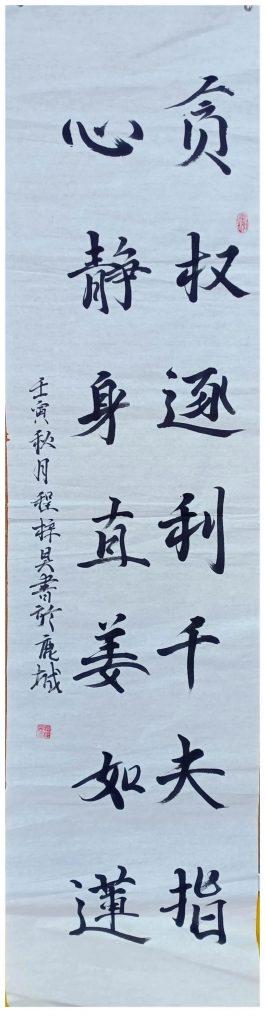 贪权逐利千夫指
心静身直姜如蓮
壬寅秋月程梓昊書於鹿城